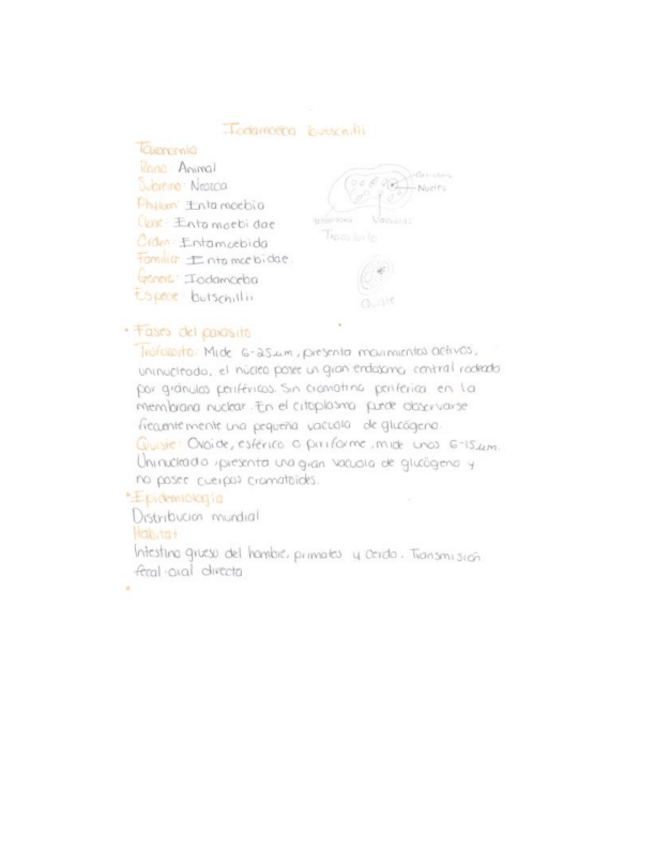 Iodamoeba butschlii
Taxonomia
Reino: Animal
Subreino: Neozoa
Phylum: Entamoebia
Clase: Entamoebidae
Orden: Entamoebida
Familia: Entamoebidae.
Genero: Iodamoeba
Especie: butschillii
Nucleo
Vacuolas
Trofozoito
Quiste
• Fases del parásito
Trofozoito: Mide 6-25 um, presenta movimientos activos,
uninucleado, el núcleo posee un gran endosoma central rodeado
por gránulos periféricos. Sin cromatina periférica en la
membrana nuclear. En el citoplasma puede observarse
frecuentemente una pequeña vacuola de glucógeno.
Quiste: Ovoide, esférico o piriforme, mide unos 6-15 um.
Uninucleado, presenta una gran vacuola de glucógeno y
no posee cuerpos cromatoides.
• Epidemiología
Distribucion mundial
Habitat
Intestino grueso del hombre, primates y cerdo. Transmisión
fecal-oral directa